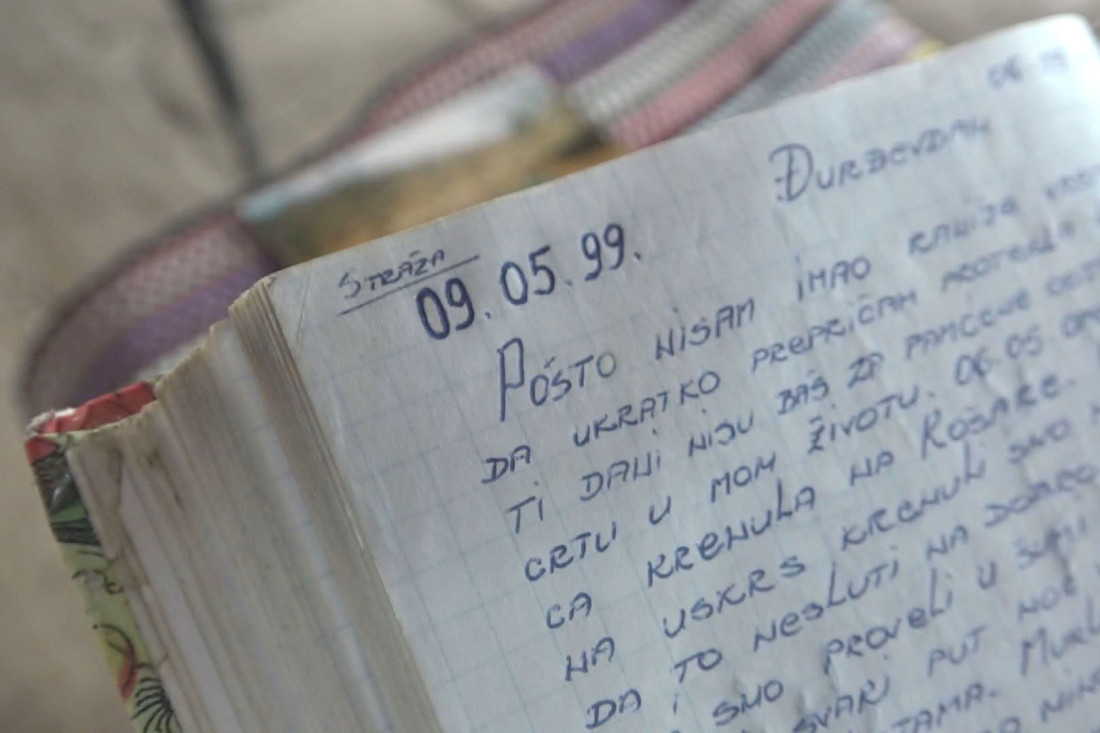 06
ĐURĐEVDAN
STRAŽA
09.05.99.
POŠTO NISAM IMAO RANIJE
DA UKRATKO PREPRIČAM PROTEKLA
TI DANI NISU BAŠ ZA PAMĆENJE
CRTU U MOM ŽIVOTU. 06.05
CA KRENULA NA KOŠARE.
NA USKRS KRENULI SMO
DA TO NESLUTI NA DOBRO
DA I SMO PROVELI U ŠUMI
SVAKI PUT NOĆ
TAMA.